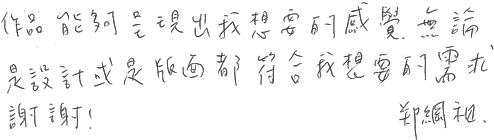 作品能夠呈現出我想要的感覺.無論
是設計或是版面都符合我想要的需求
謝謝! 鄭綱祖.